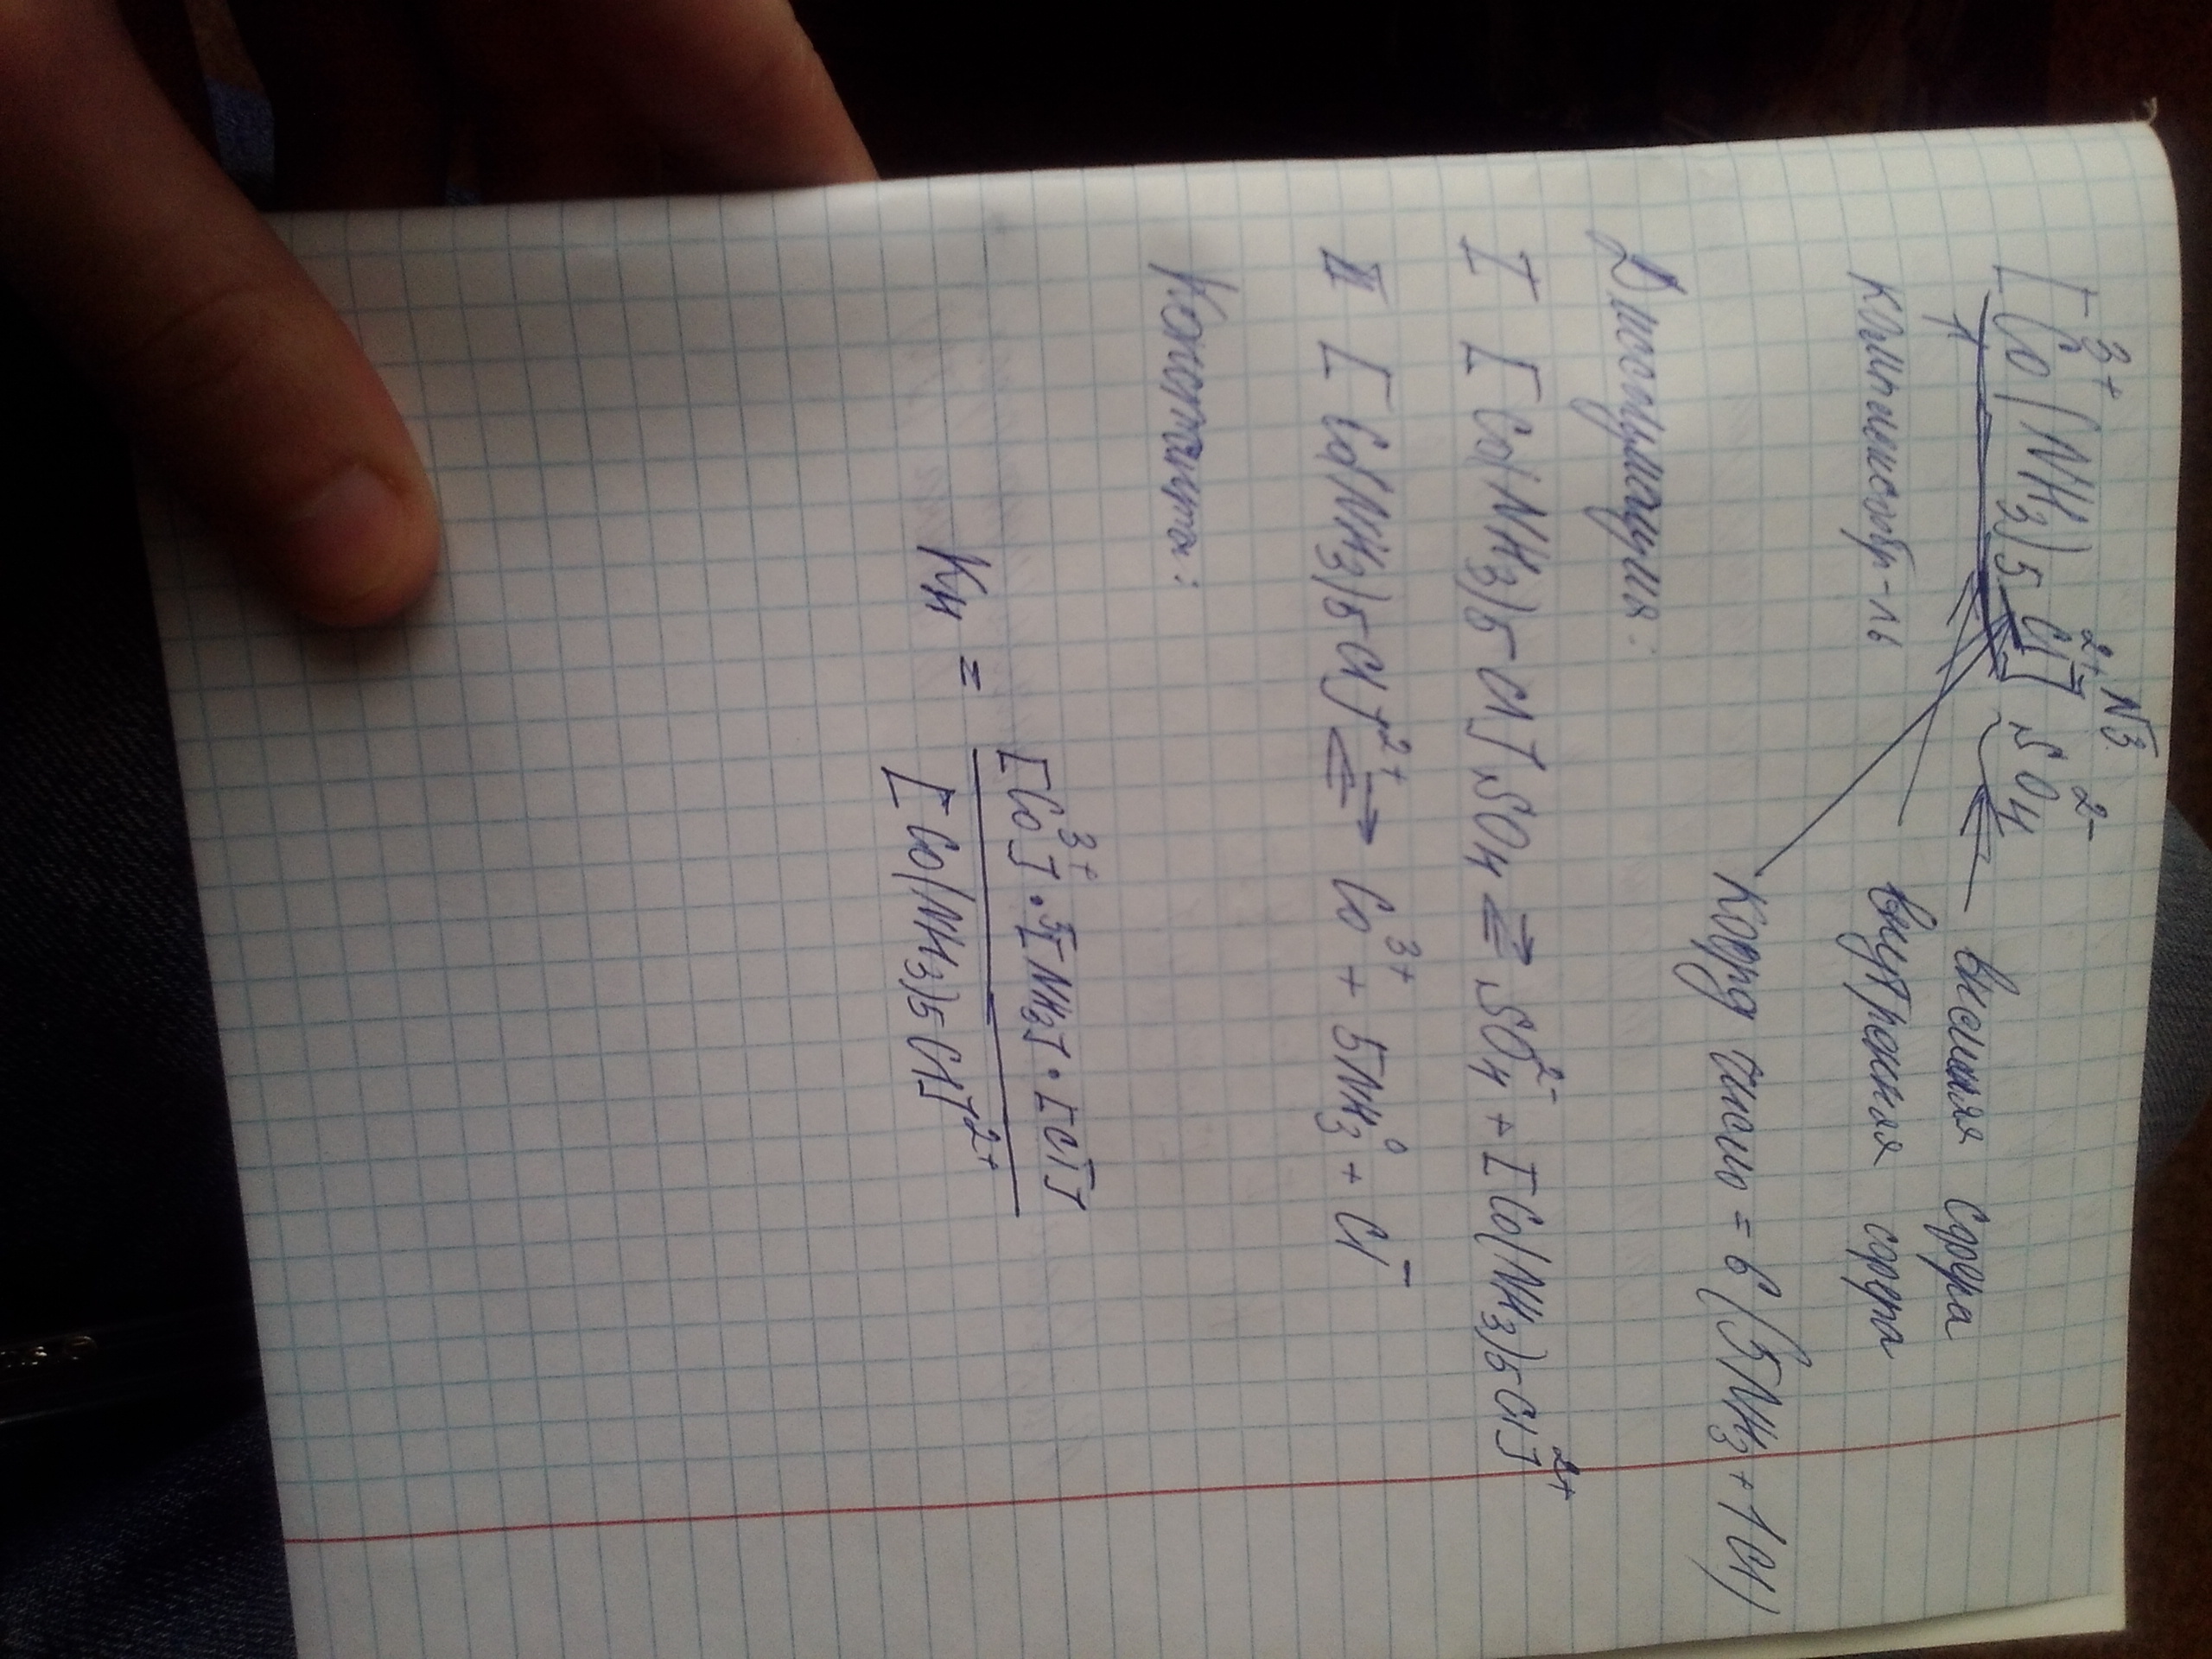 №3
[Co³⁺(NH₃)₅Cl]²⁺ SO₄²⁻
1
внешняя сфера
комплексобр-ль
внутренняя сфера
Коорд число = 6 (5NH₃ + 1Cl)
Диссоциация:
I [Co(NH₃)₅Cl]SO₄ ⇄ SO₄²⁻ + [Co(NH₃)₅Cl]²⁺
II [Co(NH₃)₅Cl]²⁺ ⇄ Co³⁺ + 5NH₃⁰ + Cl⁻
Константа:
Kн = [Co³⁺] · [NH₃] · [Cl⁻]
[Co(NH₃)₅Cl]²⁺